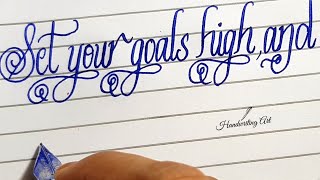 Set your goals high, and
Handwriting Art